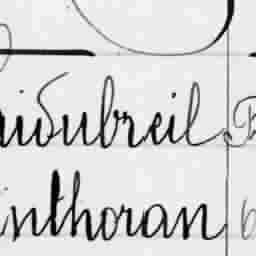 uidubreil
inthoran